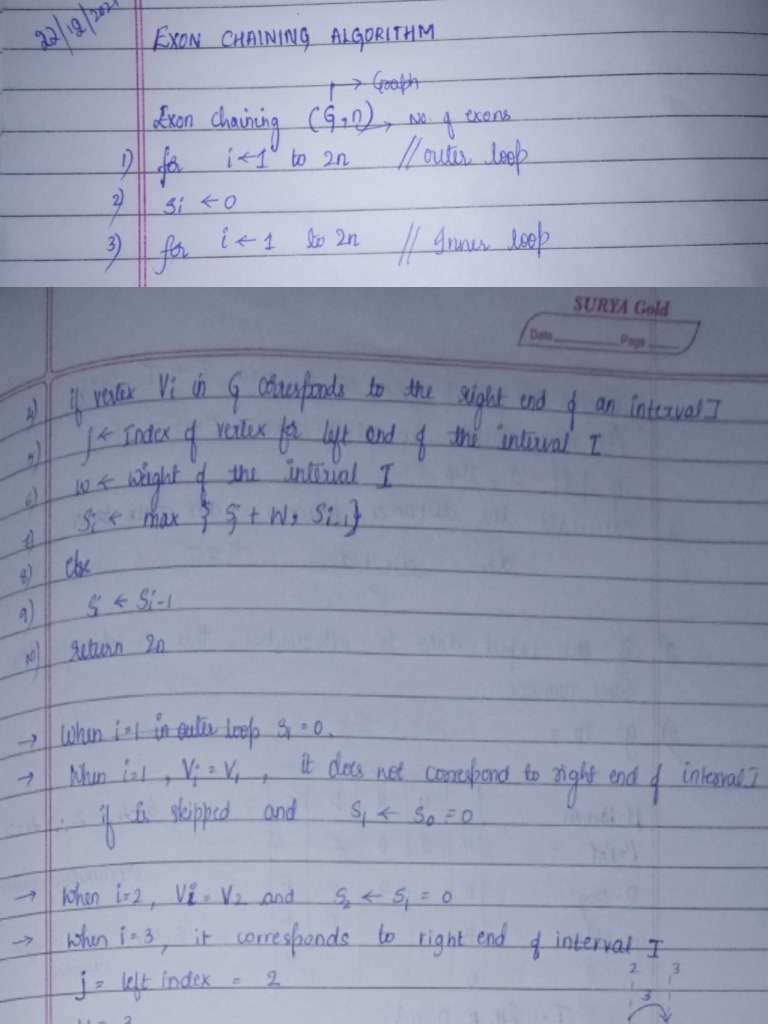 22/12/2021
EXON CHAINING ALGORITHM
→ Graph
Exon chaining (G, n) → No. of exons
1) for i ← 1 to 2n // outer loop
2) si ← 0
3) for i ← 1 to 2n // Inner loop
SURYA Gold
Date Page
4) if vertex Vi in G corresponds to the right end of an interval I
5) j ← Index of vertex for left end of the interval I
6) w ← weight of the interval I
7) Si ← max { Sj + W, Si-1}
8) else
9) Si ← Si-1
10) return 2n
→ When i=1 in outer loop S1 = 0.
→ When i=1, Vi = V1, it does not correspond to right end of interval I
if is skipped and S1 ← S0 = 0
→ When i=2, Vi = V2 and S2 ← S1 = 0
→ When i=3, it corresponds to right end of interval I
j = left index = 2
2 3
3